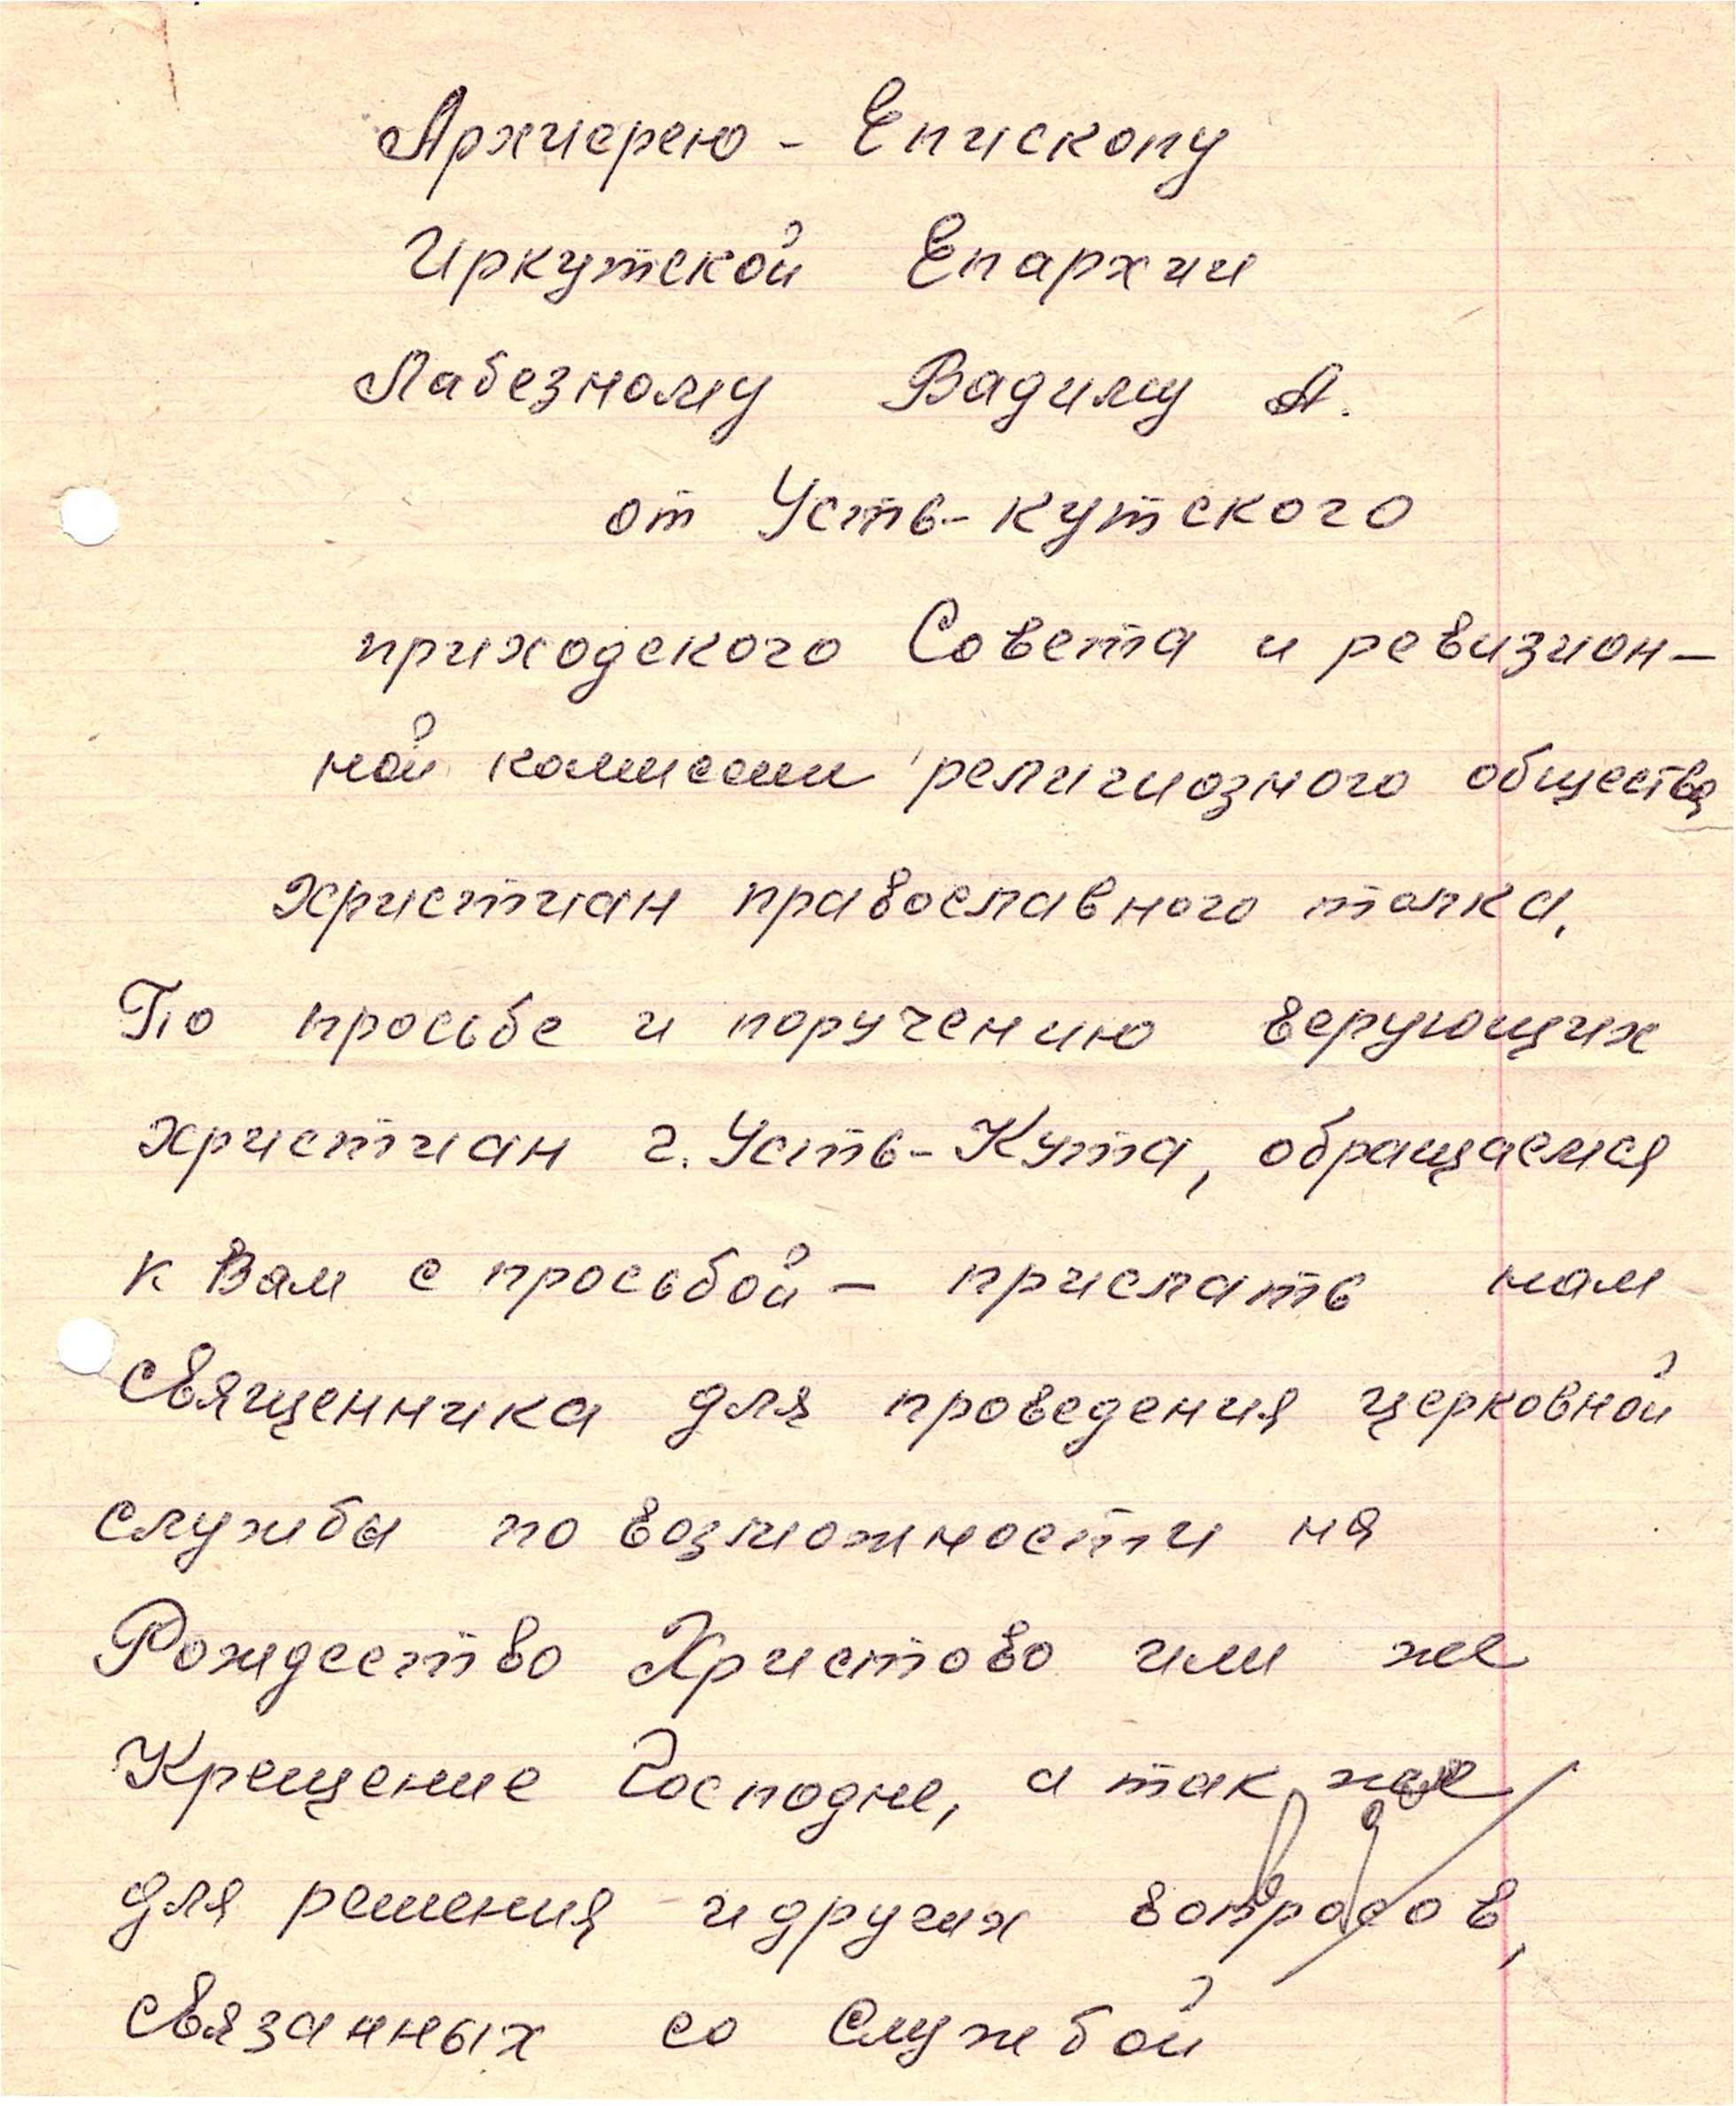 Архиерею - Епископу
Иркутской Епархии
Лабезному Вадиму А.
от Усть-кутского
приходского Совета и ревизион-
ной комиссии религиозного общества
христиан православного толка.
По просьбе и поручению верующих
христиан г. Усть-Кута, обращаемся
к Вам с просьбой - прислать нам
священника для проведения церковной
службы по возможности на
Рождество Христово или же
Крещение Господне, а так же
для решения и других вопросов,
связанных со Службой